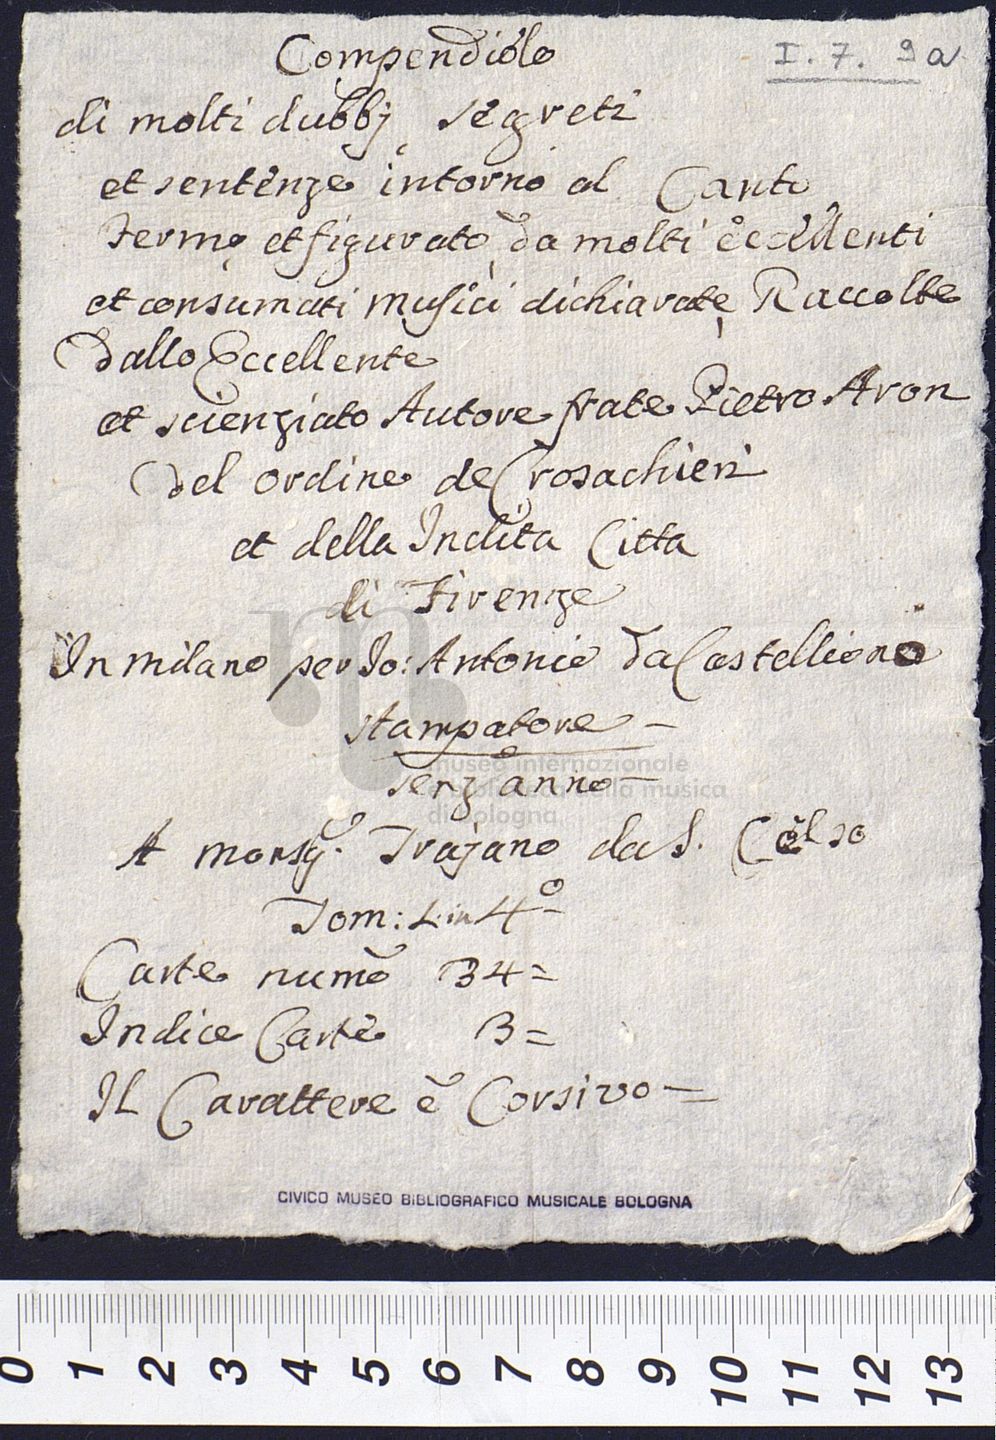 I. 7. 9a
Compendiolo
di molti dubbj segreti
et sentenze intorno al Canto
Fermo, et figurato, da molti eccellenti
et consumati Musici dichiarate, Raccolte
dallo Eccellente
et scienziato Autore frate Pietro Aron
del ordine de Crosachieri
et della Inclita Citta
di Firenze
In milano per Io: Antonio da Castelliono
stampatore –
senz'anno –
A monsig.r Trajano da S. Celso
Tom: 1. in 4º
Carte numº 34 =
Indice Carte 3 =
Il Carattere è Corsivo =
museo internazionale
e biblioteca della musica
di bologna
CIVICO MUSEO BIBLIOGRAFICO MUSICALE BOLOGNA
0 1 2 3 4 5 6 7 8 9 10 11 12 13